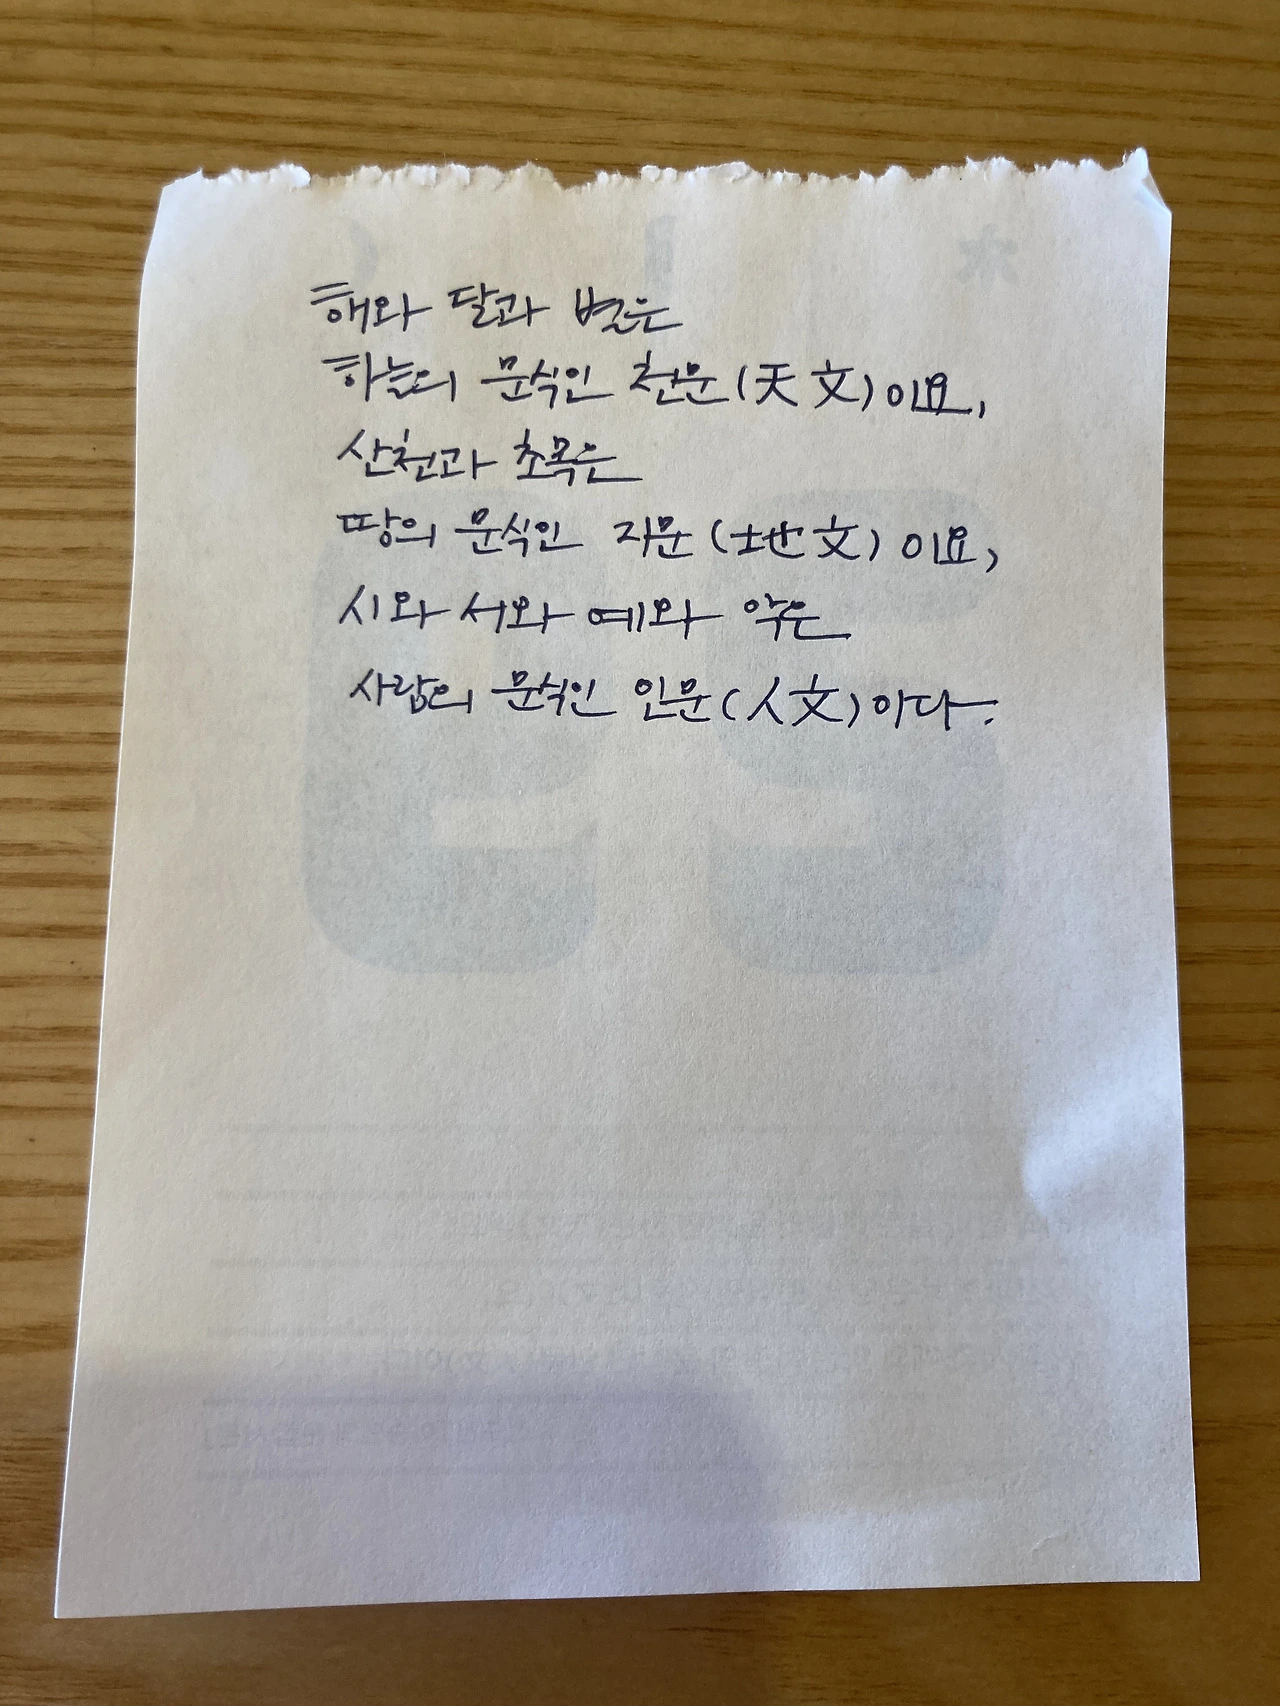 해와 달과 별은
하늘의 문식인 천문(天文)이요,
산천과 초목은
땅의 문식인 지문(地文)이요,
시와 서와 예와 악은
사람의 문식인 인문(人文)이다.